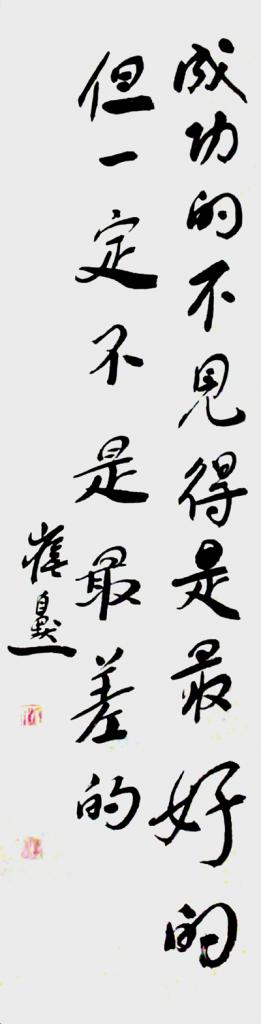 成功的不見得是最好的
但一定不是最差的
崔自默